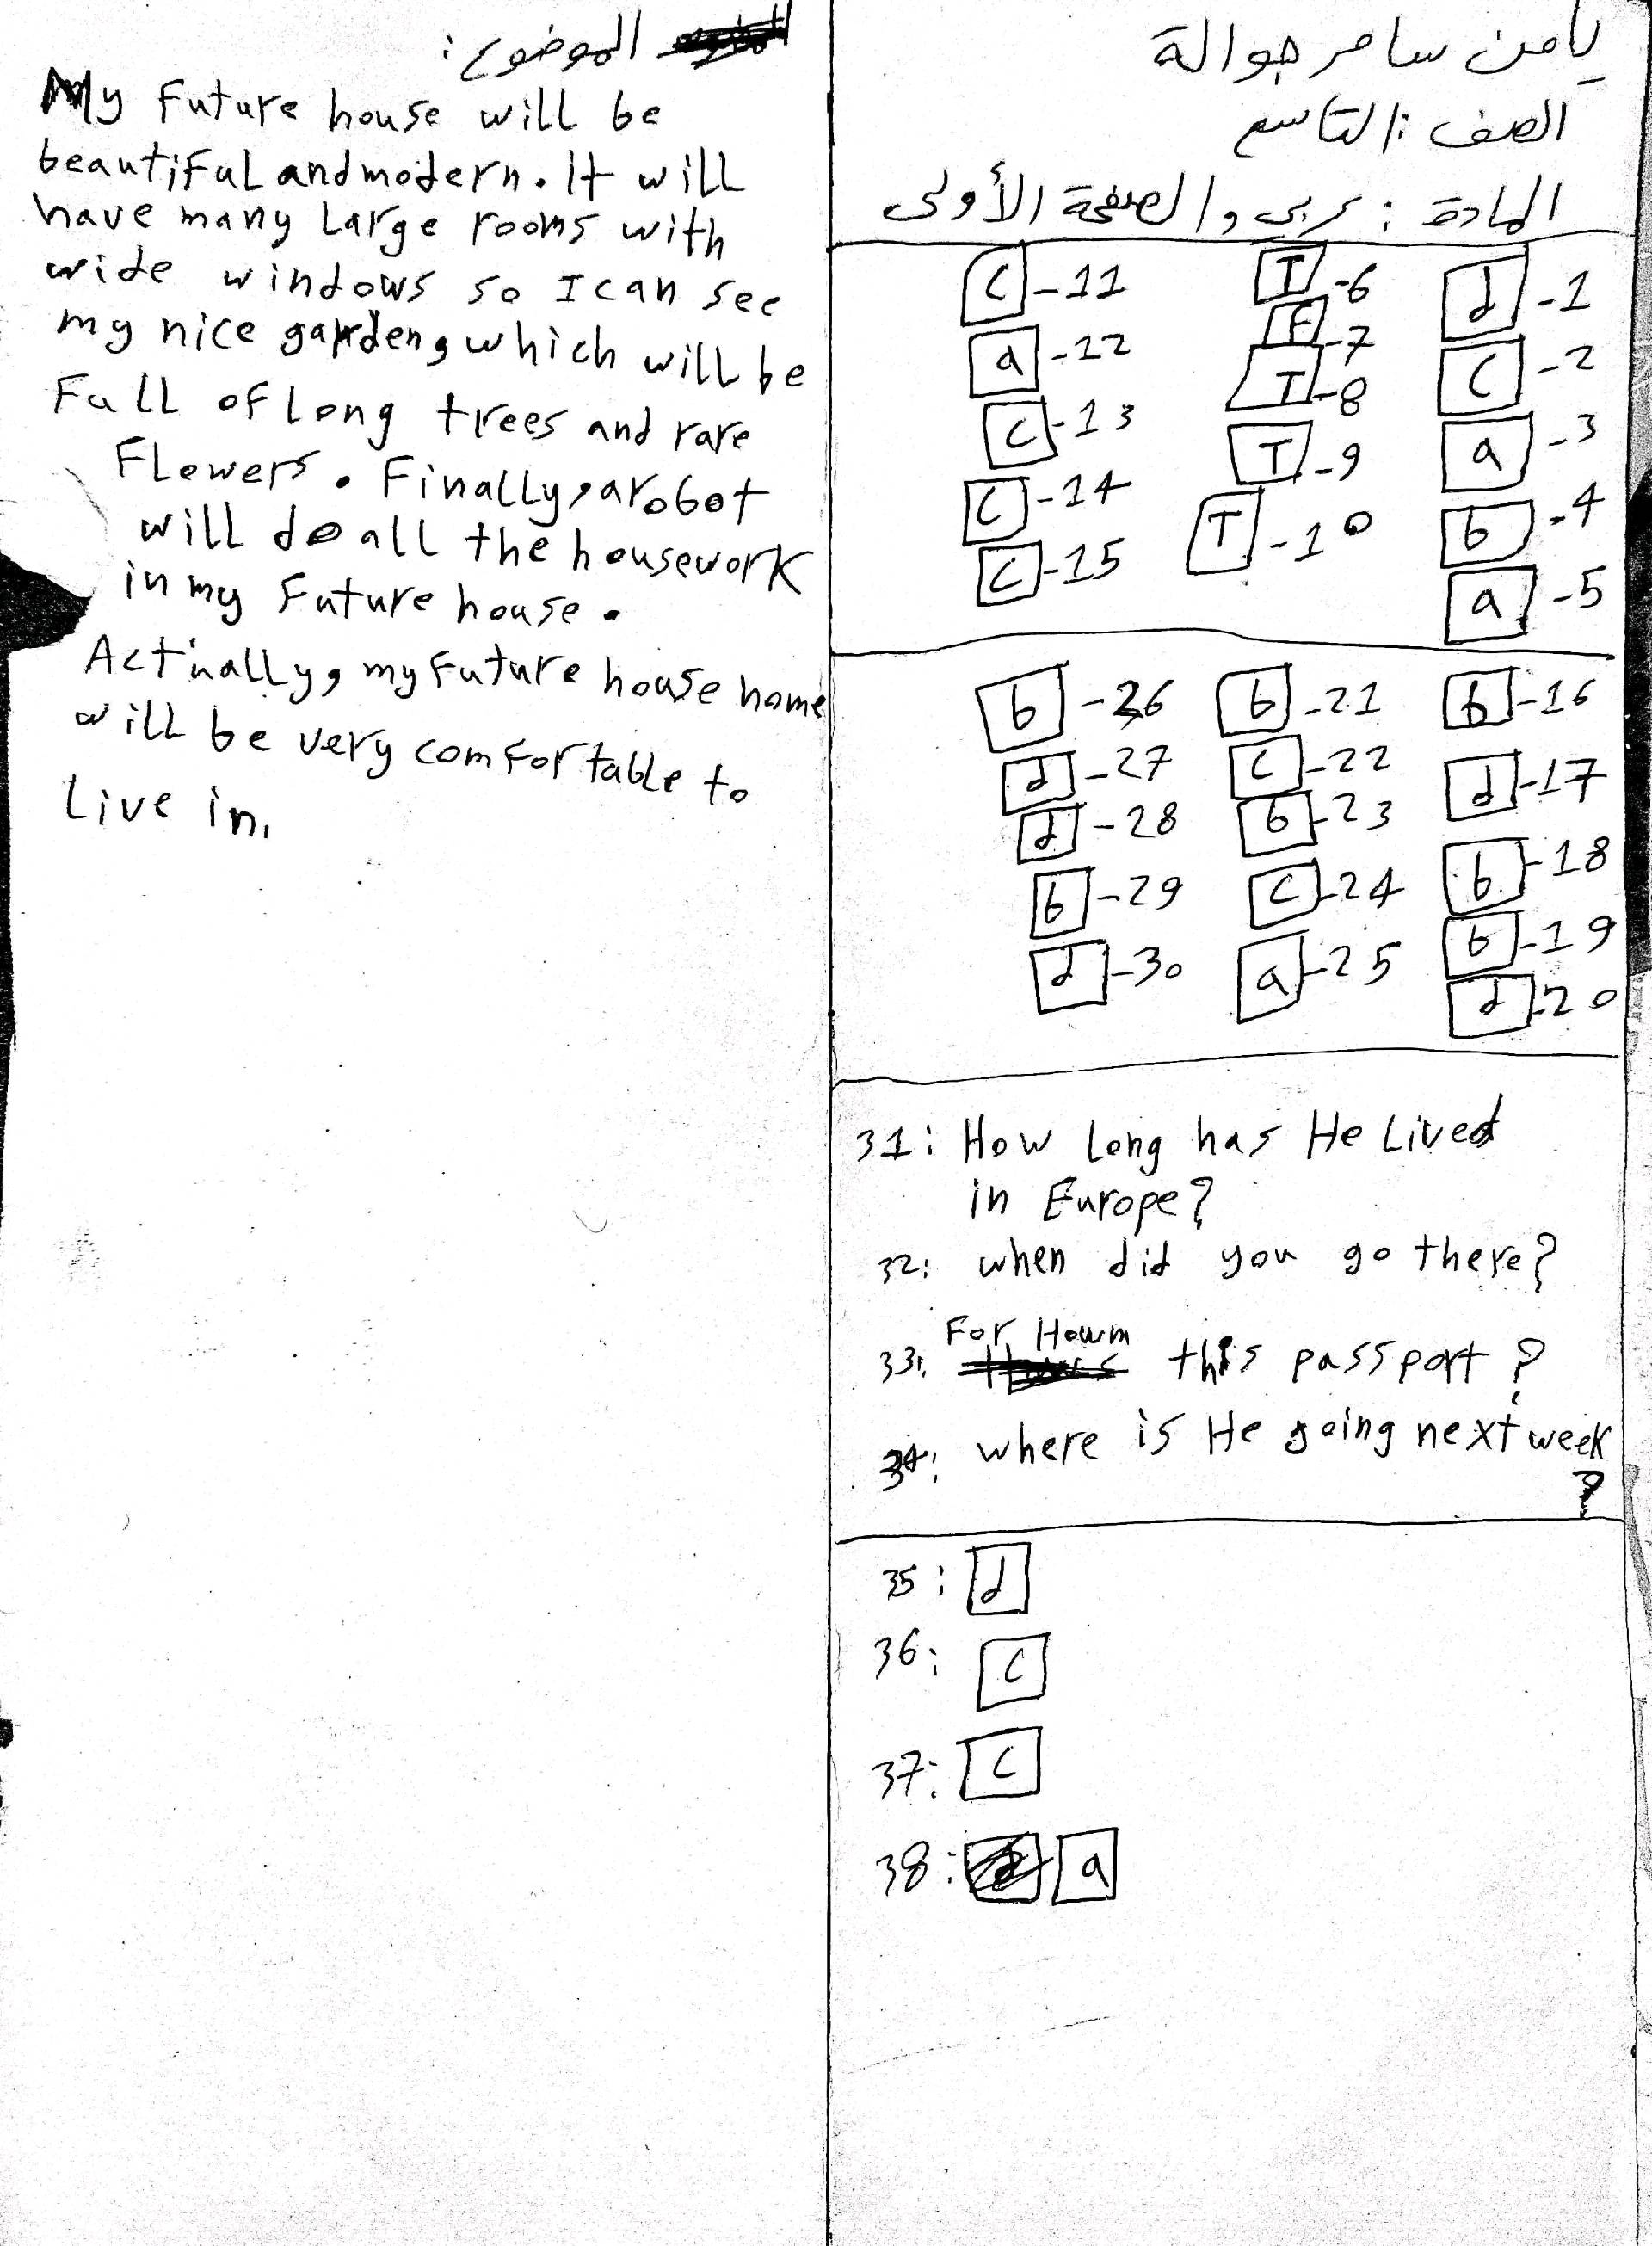 يامن سامر جوالة
الصف : التاسع
المادة : عربي والصفحة الأولى
d -1
c -2
a -3
b -4
a -5
T -6
F -7
T -8
T -9
T -10
c -11
a -12
c -13
c -14
c -15
b -16
d -17
b -18
b -19
d -20
b -21
c -22
b -23
c -24
a -25
b -26
d -27
d -28
b -29
d -30
31: How Long has He Lived
in Europe?
32: when did you go there?
33: For Howm this passport?
34: where is He going next week
?
35: d
36: c
37: c
38: a
الموضوع:
My Future house will be
beautiful and modern. It will
have many Large rooms with
wide windows so I can see
my nice garden, which will be
Full of Long trees and rare
Flowers. Finally, a robot
will do all the housework
in my Future house.
Actually, my Future house home
will be very comfortable to
Live in.